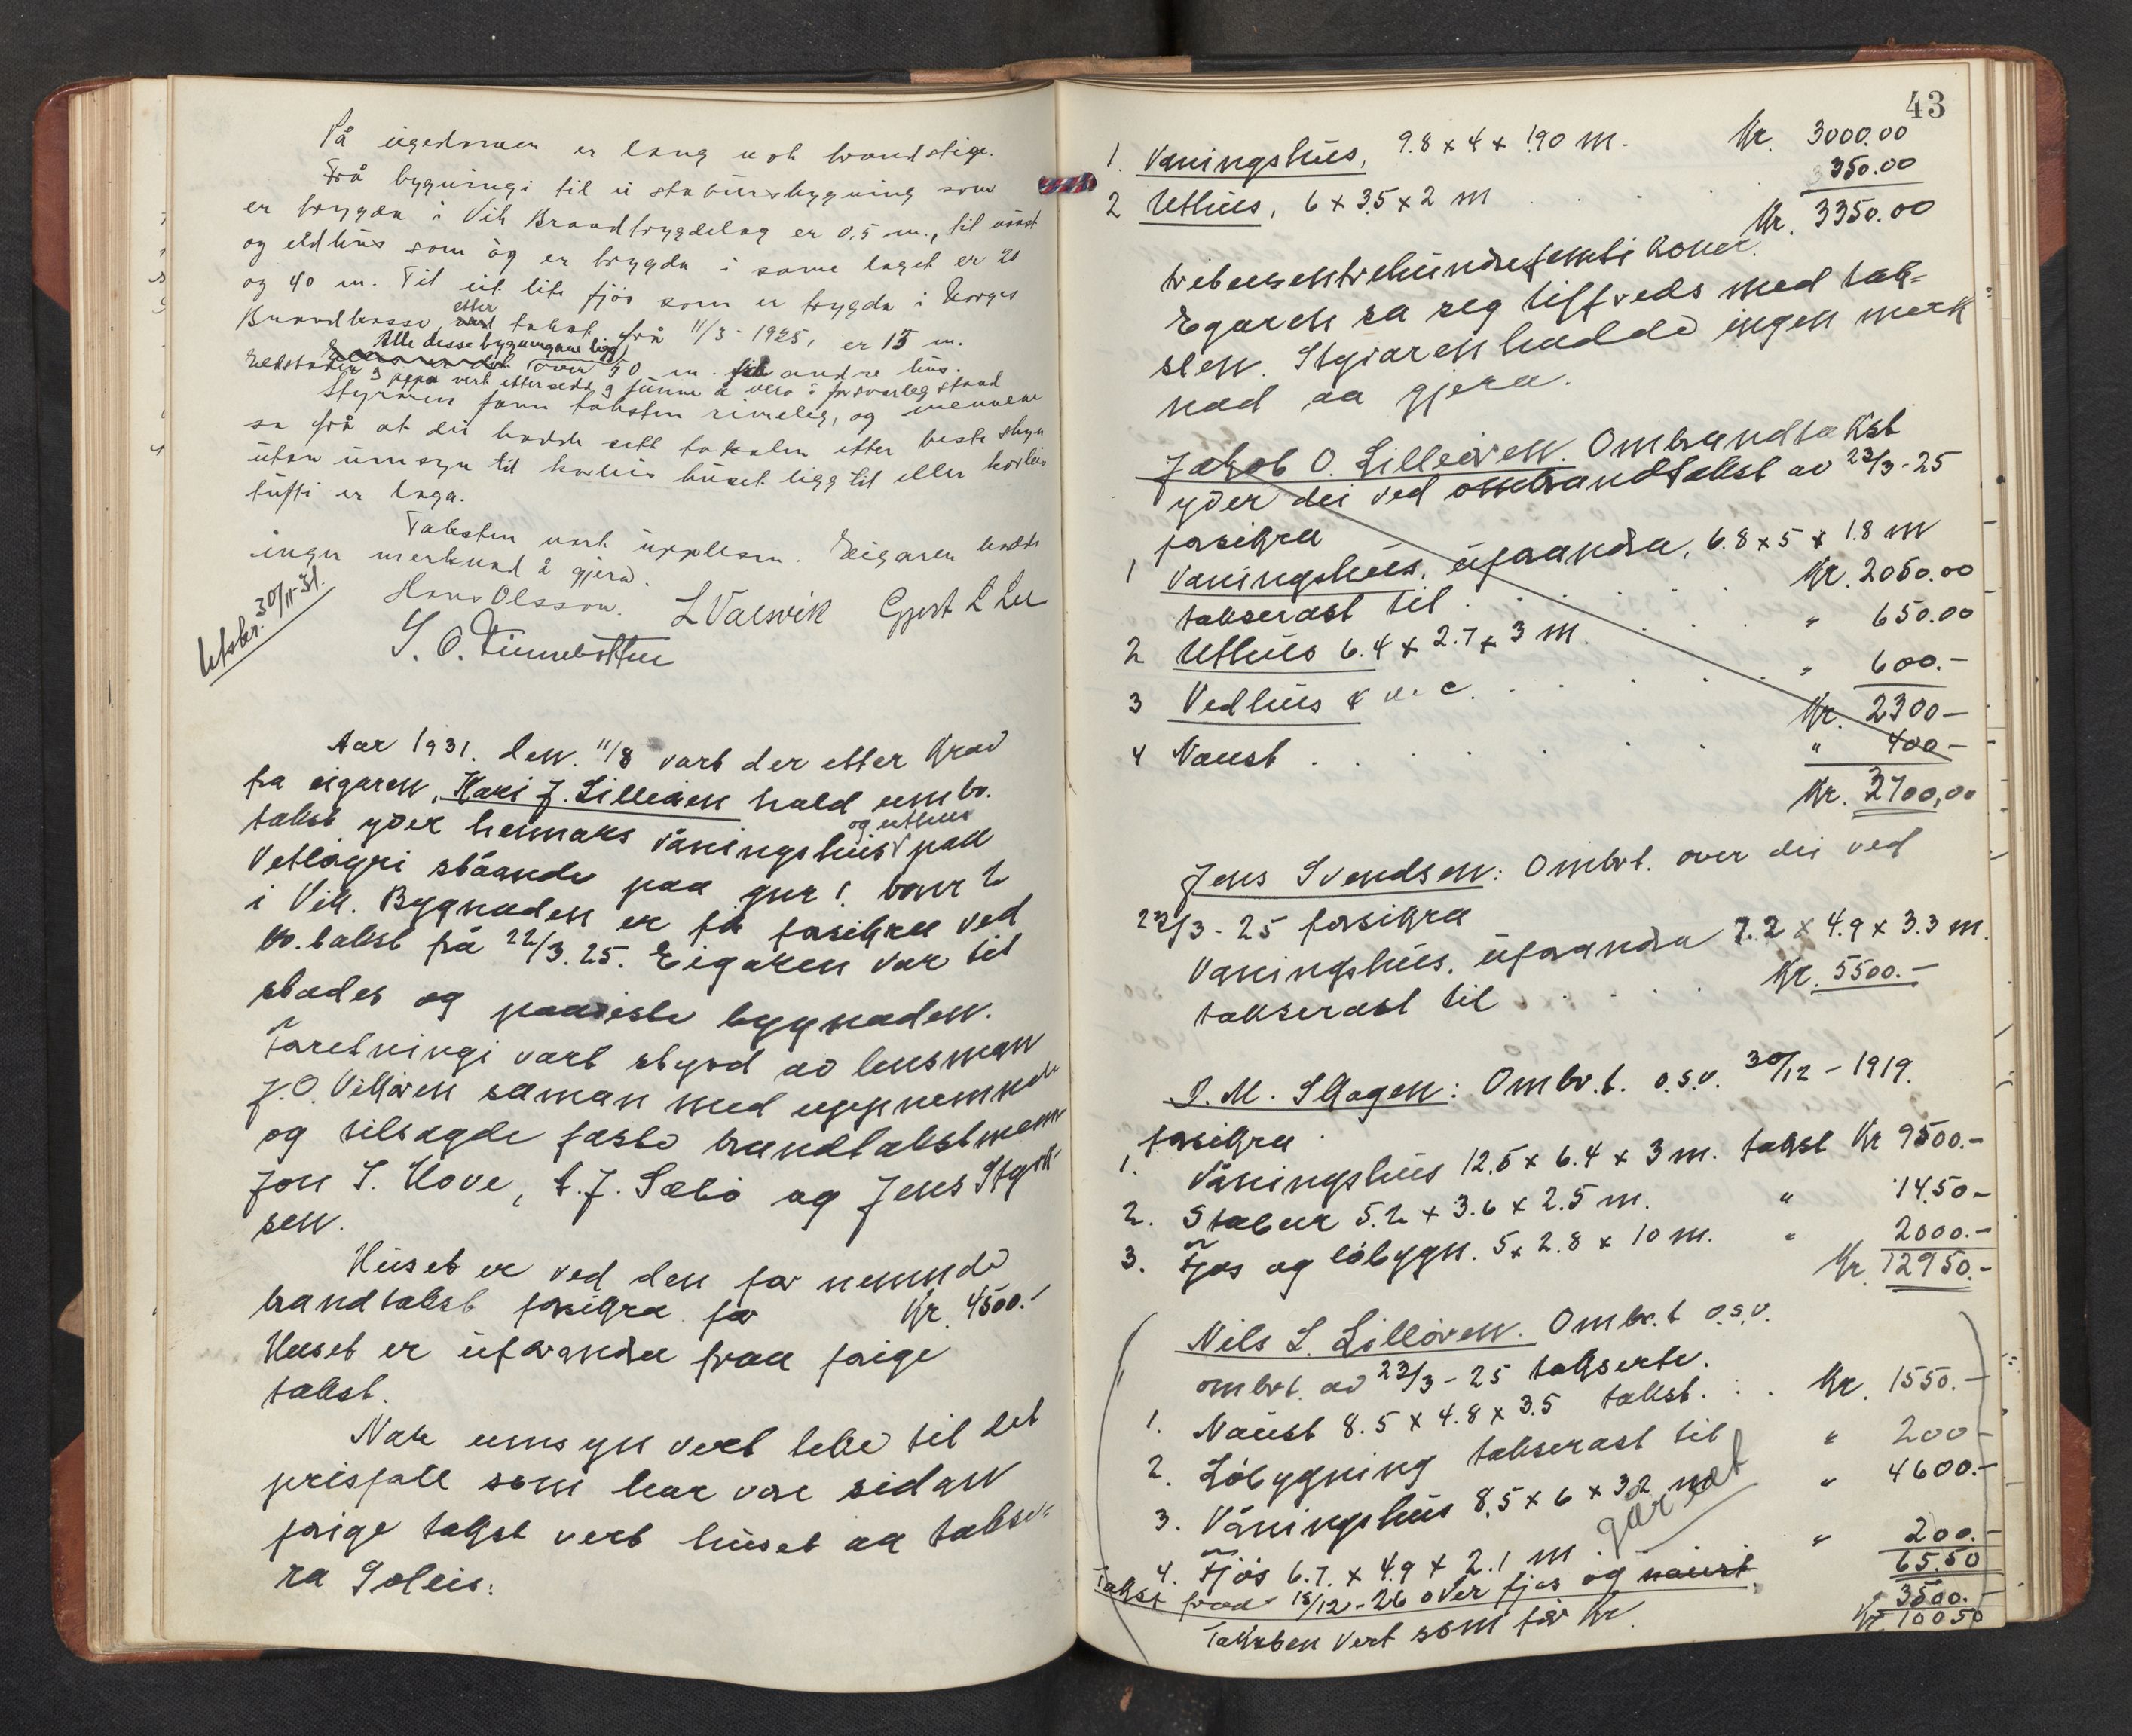 På eigedomen er lang nok brandstige.
Frå bygningi til ei stabursbygning som
er trygda i Vik Brandtrygdelag er 0,5 m., til naust
og eldhus som òg er trygda i same laget er 20
og 40 m. Til eit lite fjös som er trygda i Norges
Brandkasse etter takst frå 11/3-1925, er 15 m.
Alle desse bygningane ligg
over 50 m. frå andre hus.
Eldstader og pipa vert ettersedde og funne å vera i forsvarleg stand
Styraren fann taksten rimeleg, og mennene
sa frå at dei hadde sett taksten etter beste skyn
utan umsyn til korleis huset ligg til eller korleis
tufti er laga.
Taksten vart upplesen. Eigaren hadde
ingen merknad å gjera.
Hans Olsson. L Valsvik Gjert L Lee
S. O. Finnebotten
Utskr. 30/11-31.
Aar 1931. den. 11/8 vart der etter krav
fra eigaren, Kari J. Lilleören hald umbr.
takst yver hennars våningshus og uthus paa
Vetleøyri ståande paa gnr 1. bnr 2
i Vik. Bygnaden er få forsikra ved
br.takst frå 22/3.25. Eigaren var til
stades og paaviste bygnaden.
Forretningi vart styrd av lensman
J. O. Vetlören saman med uppnemnde
og tilsagde faste brandtakstmenn
Jon S. Hove, A. J. Sæbö og Jens Styrk-
sen.
Huset er ved den før nemnde
brandtakst forsikra for Kr. 4500.-
Huset er uforandra fraa forige
takst.
Nar umsyn vert teke til det
prisfall som har vore sidan
forige takst vert huset aa takse-
ra soleis:
43
1. Vaningshus, 9.8 x 4 x 1.90 m. Kr. 3000.00
2 Uthus, 6 x 3.5 x 2 m 350.00
Kr. 3350.00
tretusentrehundrefemti kroner.
Egaren sa seg tilfreds med tak-
sten. Styraren hadde ingen merk
nad aa gjera.
Jakob O. Lilleören. Ombrandtakst
yver dei ved ombrandtakst av 23/3-25
forsikra
1 Vaningshus, uforandra, 6.8 x 5 x 1.8 m
takserast til Kr. 2050.00
2 Uthus 6.4 x 2.7 x 3 m. " 650.00
3 Vedhus " 600.-
Kr. 2300-
4 Naust . " 400-
Kr. 2700,00
Jens Svendsen: Ombrt. over dei ved
22/3-25 forsikra
Vaningshus, uforandra 7.2 x 4.9 x 3.3 m.
takserast til Kr. 5500.-
I. M. Skagen: Ombr.t. o.s.v. 30/12-1919.
forsikra
1. Våningshus 12.5 x 6.4 x 3 m. takst Kr 9500.-
2. Stabur 5.2 x 3.6 x 2.5 m. " 1450-
3. Fjøs og løbygn. 5 x 2.8 x 10 m. " 2000.-
Kr. 12950.-
Nils L. Lillören. Ombr.t o.s.v.
ombrt. av 23/3-25 takserte.
1. Naust 8.5 x 4.8 x 3.5 takst. Kr. 1550.-
2. Löbygning takserast til " 200-
3. Våningshus 8.5 x 6 x 3.2 m " 4600.-
4. Fjös 6.7 x 4.9 x 2.1 m. " 200.-
6550
Takst fraa 18/12-26 over fjøs og naust. 3500.-
Taksten vert som før Kr. Kr. 10050